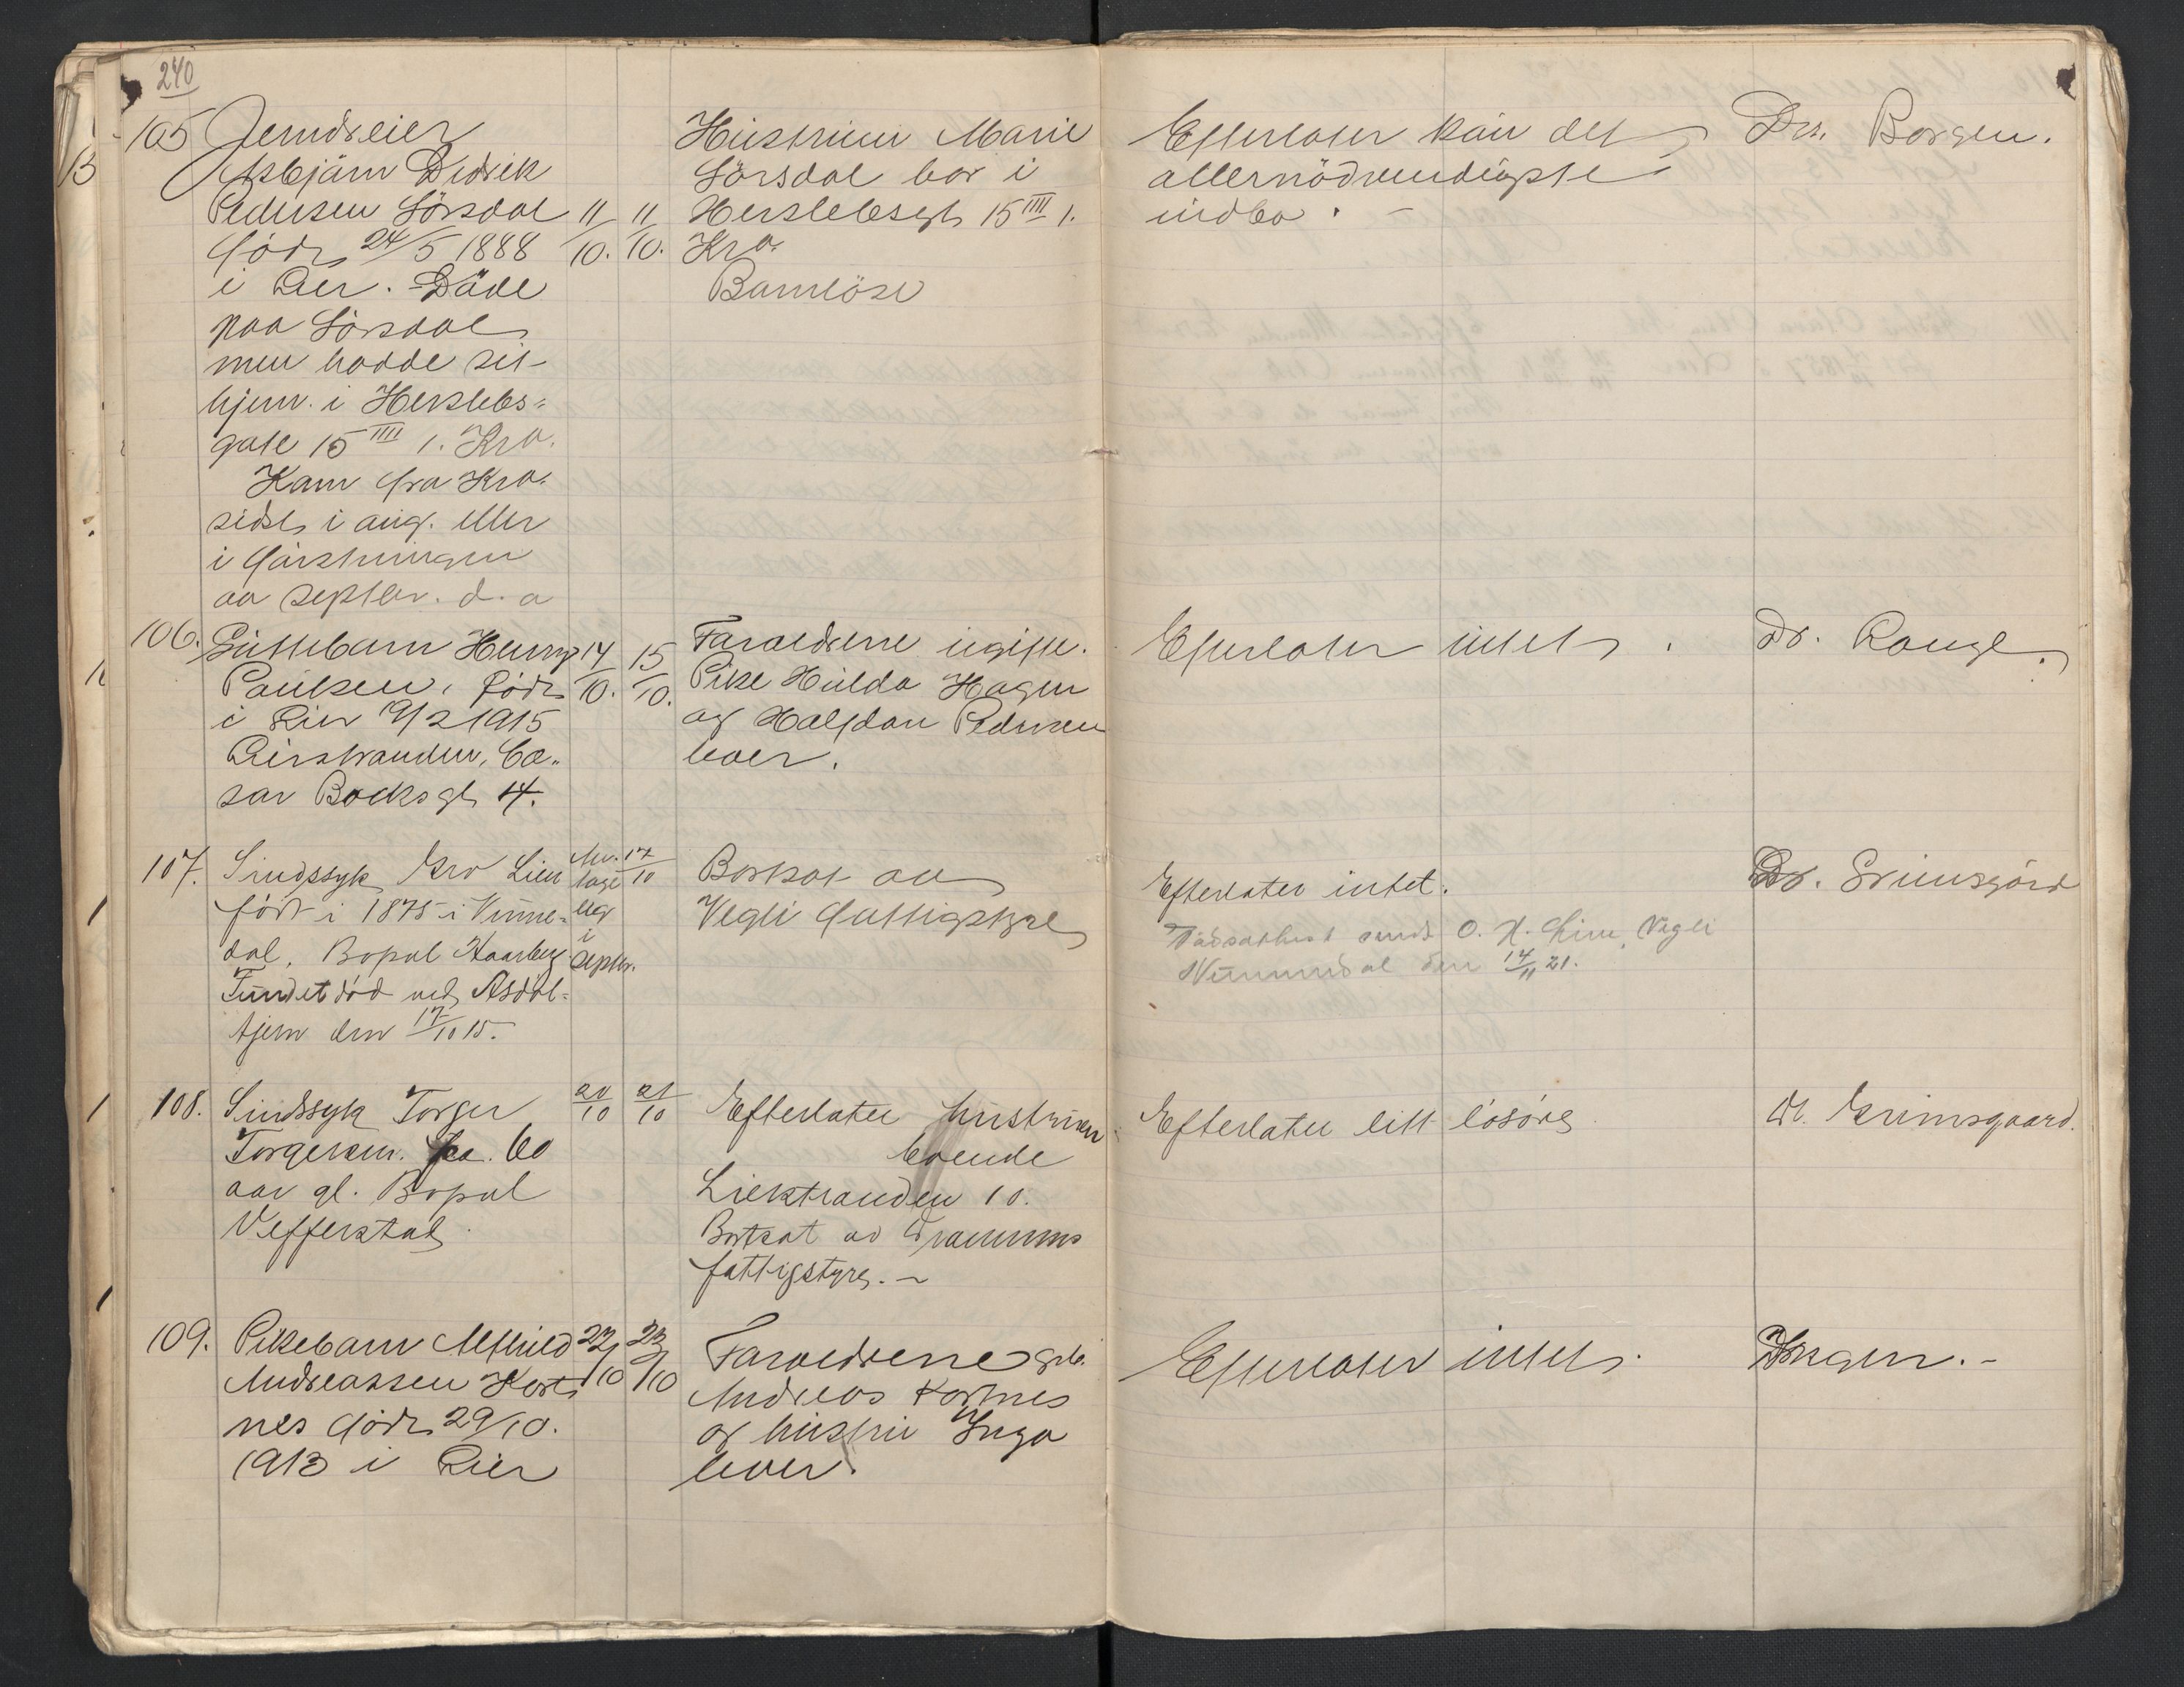 240
105 Jerndreier
Asbjörn Didrik
Pedersen Sörsdal 11/10. 11/10.
född 24/5 1888
i Lier. Döde
paa Sörsdal
men hadde sit
hjem i Herslebs=
gate 15 IIII 1. Kra.
Kom fra Kra.
sidst i aug. eller
i förstningen
av septbr. d. a
Hustruen Marie
Sörsdal bor i
Herslebsgt 15 IIII 1.
Kra.
Barnlöse
Efterlater kun det
allernödvendigste
indbo. -
Dr. Borgen.
106. Guttebarn Henry 14/10. 15/10.
Paulsen, född
i Lier 19/2 1915
Lierstranden, Cæ=
sar Boeksgt 14.
Forældrene ugifte.
Pike Hulda Hagen
og Halfdan Pedersen
lever.
Efterlater intet.
Dr. Range.
107. Sindssyk Gro Lien
født i 1875 i Numme=
dal. Bopæl Haarberg.
Fundet död ved Asdöl=
tjern den 17/10 15.
An-
tagelig
i
septbr.
17/10
Bortsat av
Vegli fattigstyre
Efterlater intet.
Dödsattest sendt O. H. Lien, Vegli
Nummedal den 14/11 21.
Dr. Grimsgård
108. Sindssyk Torger 20/10 21/10
Torgersen. ca. 60
aar gl. Bopæl
Vefferstad
Efterlater hustruen
boende
Lierstranden 10.
Bortsat av Drammens
fattigstyre. -
Efterlater litt lösöre
Dr. Grimsgaard.
109. Pikebarn Alfhild 22/10 23/10
Andreassen Kort
nes född 29/10.
1913 i Lier
Forældrene grb.
Andreas Kortnes
og hustru Inga
lever.
Efterlater intet.
Borgen. -